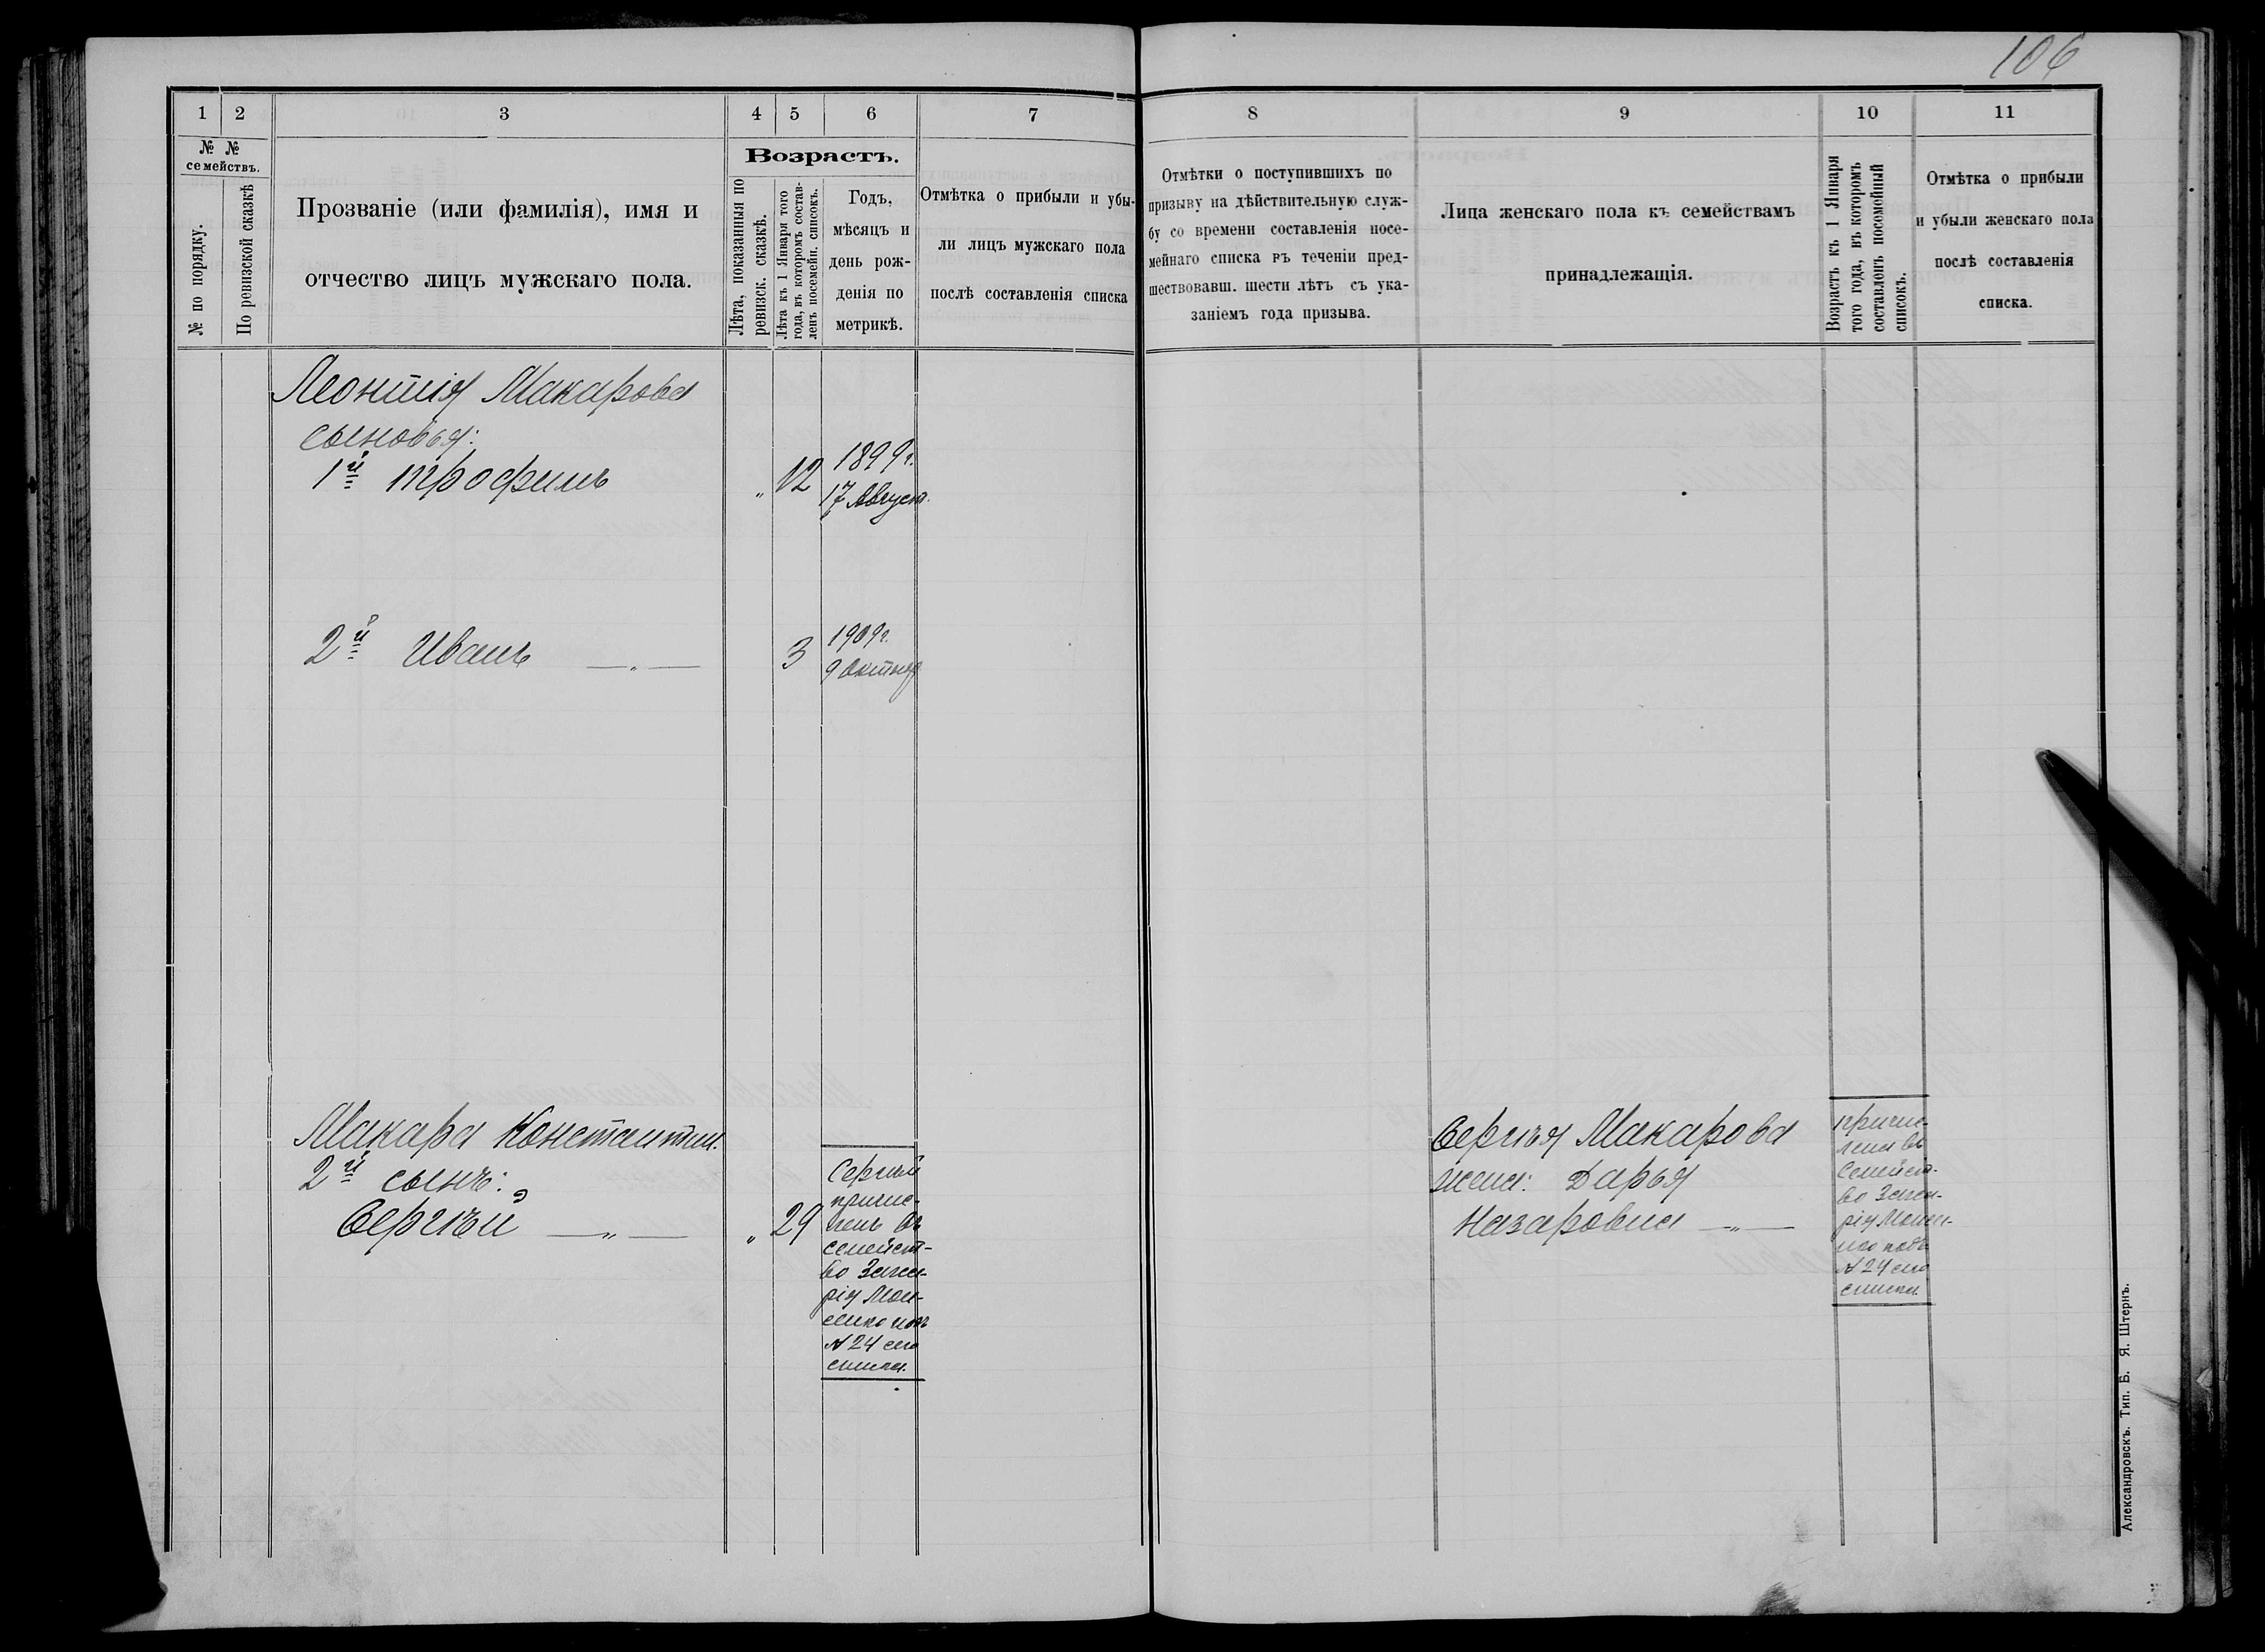 106
1 2 3 4 5 6 7
№ №
семействъ.
№ по порядку.
По ревизской сказкѣ
Прозваніе (или фамилія), имя и
отчество лицъ мужскаго пола.
Возрастъ.
Лѣта, показанныя по
ревизск. сказкѣ.
Лѣта къ 1 Января того
года, въ которомъ состав-
ленъ посемейн. списокъ.
Годъ,
мѣсяцъ и
день рож-
денія по
метрикѣ.
Отмѣтка о прибыли и убы-
ли лицъ мужскаго пола
послѣ составленія списка
8 9 10 11
Отмѣтки о поступившихъ по
призыву на дѣйствительную служ-
бу со времени составленія посе-
мейнаго списка въ теченіи пред-
шествовавш. шести лѣтъ съ ука-
заніемъ года призыва.
Лица женскаго пола къ семействамъ
принадлежащія.
Возрастъ къ 1 Января
того года, въ которомъ
составленъ посемейный
списокъ.
Отмѣтка о прибыли
и убыли женскаго пола
послѣ составленія
списка.
Леонтія Макарова
сыновья:
1й Трофимъ „ 12 1899 г.
17 Август.
2й Иванъ —„— 3 1909 г.
9 Октяб
Макара Константин.
2й сынъ:
Сергѣй —„— „ 29
Сергѣй
причис-
ленъ въ
семейст-
во Заха-
рія Мои-
сенко подъ
№ 24 сего
списка.
Сергѣя Макарова
жена: Дарья
Назаровна —„—
причис-
лена въ
семейст-
во Заха-
рія
подъ
№ 24 сего
списка.
Александровскъ. Тип. Б. Я. Штернъ.